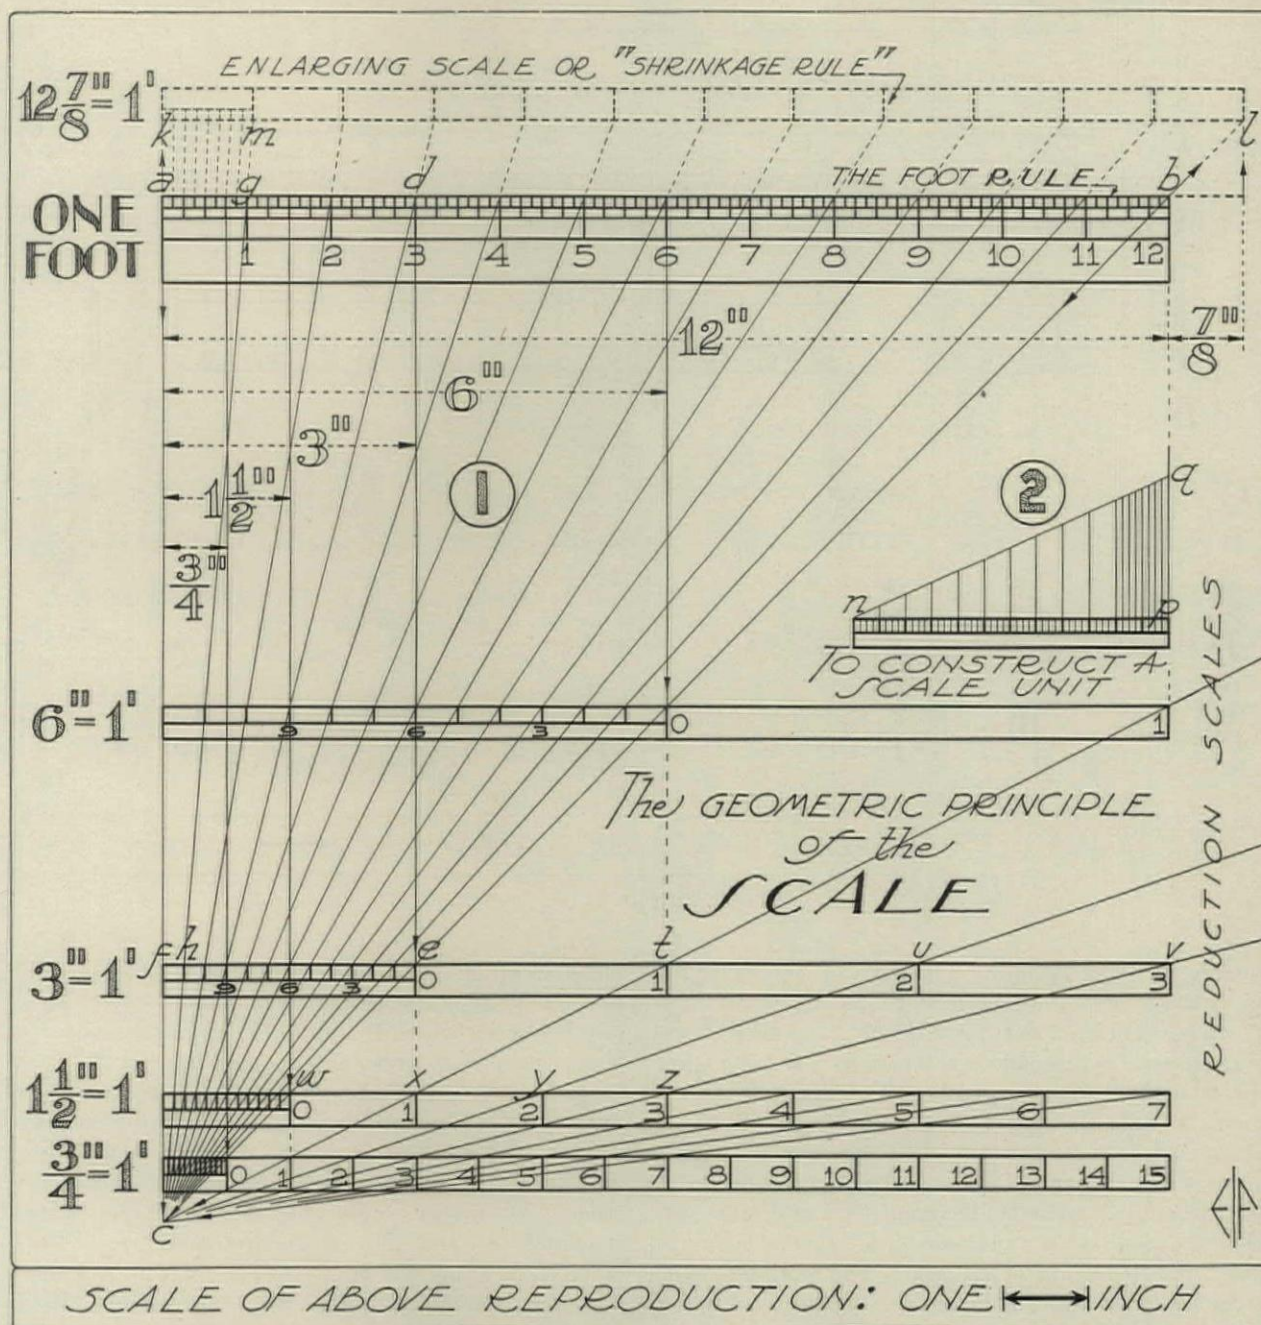 ENLARGING SCALE OR "SHRINKAGE RULE"
12 7/8" = 1'
k m l
a g d THE FOOT RULE b
ONE
FOOT
1 2 3 4 5 6 7 8 9 10 11 12
12" 7/8"
6"
3"
1 1/2" 1 2 q
3/4"
n p
TO CONSTRUCT A
SCALE UNIT
REDUCTION SCALES
6" = 1'
9 6 3 0 1
The GEOMETRIC PRINCIPLE
of the
SCALE
f h e t u v
3" = 1'
9 6 3 0 1 2 3
w x y z
1 1/2" = 1'
0 1 2 3 4 5 6 7
3/4" = 1'
0 1 2 3 4 5 6 7 8 9 10 11 12 13 14 15
c
SCALE OF ABOVE REPRODUCTION: ONE INCH